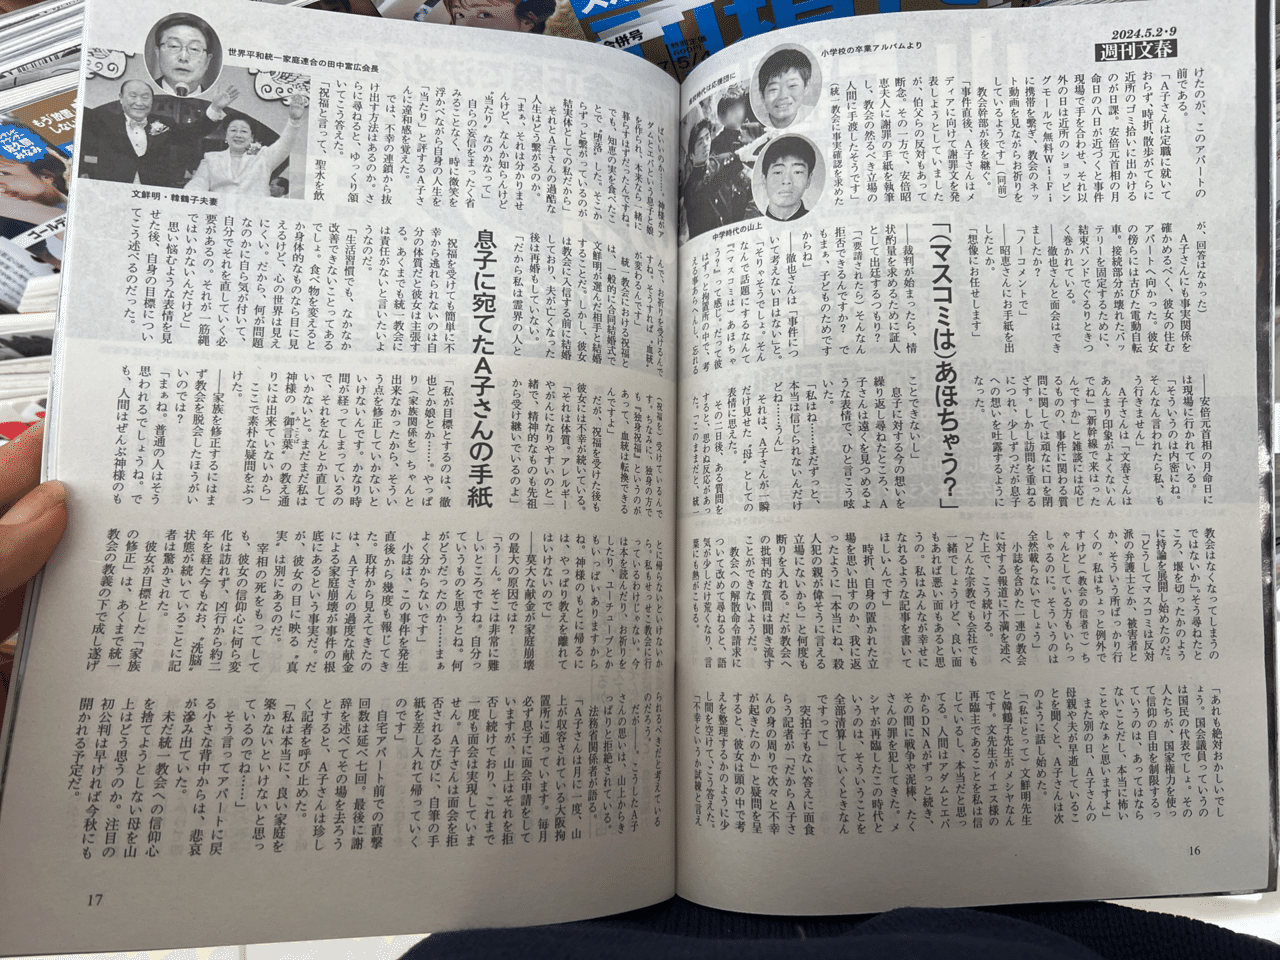 2024.5.2・9
週刊文春
小学校の卒業アルバムより
高校時代は応援団に
中学時代の山上
けたのが、このアパートの
前である。
「A子さんは定職に就いて
おらず、時折、散歩がてらに
近所のゴミ拾いに出かける
のが日課。安倍元首相の月
命日の八日が近づくと事件
現場で手を合わせ、それ以
外の日は近所のショッピン
グモールで無料Wi-Fi
に携帯を繋ぎ、教会のネッ
ト動画を見ながらお祈りを
しているようです」(同前)
教会幹部が後を継ぐ。
「事件直後、A子さんはメ
ディアに向けて謝罪文を発
表しようとしていました
が、伯父らの反対もあって
断念。その一方で、安倍昭
恵夫人に謝罪の手紙を執筆
し、教会の然るべき立場の
人間に手渡したそうです」
(統一教会に事実確認を求めた
が、回答はなかった)
A子さんにも事実関係を
確かめるべく、彼女の住む
アパートへ向かった。彼女
の傍らには古びた電動自転
車。接続部分が壊れたバッ
テリーを固定するために、
結束バンドでぐるりときつ
く巻かれている。
――徹也さんと面会はでき
ましたか?
「ノーコメントで」
――昭恵さんにお手紙を出
したとか。
「想像にお任せします」
「(マスコミは)あほちゃう?」
――裁判が始まったら、情
状酌量を求めるために証人
として出廷するつもり?
「(要請されたら)そんなん
拒否できるんですか? で
もまぁ、子どものためです
からね」
――徹也さんは「事件につ
いて考えない日はない」と。
「そりゃそうでしょ。そん
なんで話題にするなんて
うぅ?』って感じ。だって彼
はずっと拘置所の中で、考
える事あらへんし、忘れる
ことできないし」
息子に対する今の想いを
繰り返し尋ねたところ、A
子さんは遠くを見つめるよ
うな表情で、ひと言こう呟
いた。
「私はね……まだずっと、
本当は信じられないんだけ
どね……うん」
それは、A子さんが一瞬
だけ見せた〝母〟としての
表情に思えた。
その二日後、ある質問を
すると、思わぬ反応があっ
――安倍元首相の月命日に
は現場に行かれている。
「そういうのは内密にね。
そんなん言われたら私、も
う行きません」
A子さんは「文春さんは
あんまり印象がよくないん
でね」「新幹線で来はった
んですか」と雑談には応じ
るものの、事件に関わる質
問に関しては頑なに口を閉
ざす。しかし訪問を重ねる
につれ、少しずつだが息子
への想いを吐露するように
教会はなくなってしまうの
ではないか」。そう尋ねたと
ころ、堰を切ったかのよう
に持論を展開し始めたのだ。
「どうしてマスコミは反対
派の弁護士とか、被害者と
か、そういう所ばっかり行
くの。私はちょっと例外で
すけど(教会の信者で)ち
ゃんとしている方もいらっ
しゃるのに。そういうのは
全然載らないでしょう」
小誌を含めた一連の教会
に対する報道に不満を述べ
た上で、こう続ける。
「どんな宗教でも会社でも
一緒でしょうけど、良い面
もあれば悪い面もあると思
うの。私はみんなが幸せに
なれるような記事を書いて
ほしいんです」
時折、自身の置かれた立
場を思い出すのか、我に返
ったように「本当にね、殺
人犯の親が偉そうに言える
立場にないから」と何度も
断りを入れる。だが教会へ
の批判的な質問は聞き流す
ことができない。
教会への解散命令請求に
ついて改めて尋ねると、語
気が少しだけ荒くなり、言
葉にも熱がこもる。
「あれも絶対おかしいでし
ょう。国会議員っていうの
は国民の代表でしょ。その
人たちが、国家権力を使っ
て信仰の自由を制限するっ
ていうのは、あってはなら
ないことだし、本当に怖い
ことやなぁと思いますよ」
また別の日、A子さんの
母親や夫が早逝しているこ
とを聞くと、A子さんは次
のように話し始めた。
「(私にとって)文鮮明先生
と韓鶴子先生がメシヤなん
です。文先生がイエス様の
再臨主であることを私は信
じているし、本当だと思っ
てる。人間はアダムとエバ
からDNAがずっと続き、
その間に戦争や泥棒、たく
さんの罪を犯してきた。メ
シヤが再臨したこの時代と
いうのは、そういうことを
全部清算していくときなん
ですって」
突拍子もない答えに面食
らう記者が「だからA子さ
んの身の周りで次々と不幸
が起きたのか」と疑問を呈
すると、彼女は頭の中で考
えを整理するかのように少
し間を空けて、こう答えた。
16
世界平和統一家庭連合の田中富広会長
文鮮明・韓鶴子夫妻
ばいいのか……。神様がア
ダムとエバという息子と娘
を作られ、本来なら一緒に
暮らすはずだったんですね。
でも、知恵の実を食べたこ
とで、堕落した。そこか
らずーっと繋がっているのが
結実体としての私だから」
それとA子さんの過酷な
人生はどう繋がるのか。
「まぁ、それは分かりませ
んけど、なんか知らんけど
〝当たり〟なのかなって」
自らの妄信をまったく省
みることなく、時に微笑を
浮かべながら自身の人生を
「当たり」と評するA子さ
んに違和感を覚えた。
では、不幸の連鎖から抜
け出す方法はあるのか。さ
らに尋ねると、ゆっくり頷
いてこう答えた。
「祝福と言って、聖水を飲
んで、お祝福を受けるんで
すね。そうすれば〝血統〟
が変わるんです」
統一教会における祝福と
は、一般的に合同結婚式で
文鮮明が選んだ相手と結婚
することだ。しかし、彼女
は教会に入信する前に結婚
しており、夫が亡くなった
後は再婚もしていない。
「だから私は霊界の人と
息子に宛てたA子さんの手紙
祝福を受けても簡単に不
幸から逃れられないのは自
分の体質だと彼女は主張す
る。あくまでも統一教会に
は責任がないと言いたいよ
うなのだ。
「生活習慣でも、なかなか
改善できないことってある
でしょ。食べ物を変えると
か身体的なものなら目に見
えるけど、心の世界は見え
にくい。だから、何が問題
なのかに自ら気が付いて、
自分でそれを直していく必
要があるの。それが一筋縄
ではいかないんだけど」
思い悩むような表情を見
せた後、自身の目標につい
てこう述べるのだった。
(祝福を)受けているんで
す。ちなみに、独身の方で
も『独身祝福』というのが
あって、血統は転換できる
んですよ」
だが、祝福を受けた後も
彼女には不幸が続いている。
「それは体質。アレルギー
やがんになりやすいのと一
緒で、精神的なものも先祖
から受け継いでいるのよ」
「私が目標とするのは、徹
也とか娘とか……。やっぱ
り(家族関係を)ちゃんと
出来なかったから、そうい
う点を修正していかないと
いけないんです。かなり時
間が経ってしまっているの
で、それをなんとか直して
いかないと。まだまだ私は
神様の〝御言葉〟の教え通
りには出来ていないから」
ここで素朴な疑問をぶつ
けた。
――家族を修正するにはま
ず教会を脱会したほうがい
いのでは?
「まぁね。普通の人はそう
思われるでしょうね。で
も、人間はぜんぶ神様のも
とに帰らないといけないか
ら。私もせっせこ教会に行
っているわけじゃない。今
は本を読んだり、お祈りを
したり、ユーチューブとか
もいっぱいありますから
ね。神様のもとに帰るに
は、やっぱり教えを離れて
はいけないので」
――莫大な献金が家庭崩壊
の最大の原因では?
「うーん。そこは非常に難
しいところですね。自分っ
ていうものを思うとね。何
がどうだったのか……まぁ
よく分からないです」
小誌は、この事件を発生
直後から幾度も報じてき
た。取材から見えてきたの
は、A子さんの過度な献金
による家庭崩壊が事件の根
底にあるという事実だ。だ
が、彼女の目に映る〝真
実〟は別にあるのだ。
宰相の死をもってして
も、彼女の信仰心に何ら変
化は訪れず、凶行から約二
年を経た今もなお、〝洗脳〟
状態が続いていることに記
者は驚かされた。
彼女が目標とした「家族
の修正」は、あくまで統一
教会の教義の下で成し遂げ
られるべきだと考えている
のだろう。
だが、こうしたA子
さんの思いは、山上からき
っぱりと拒絶されている。
法務省関係者が語る。
「A子さんは月に一度、山
上が収容されている大阪拘
置所に通っています。毎月
必ず息子に面会申請をして
いますが、山上はそれを拒
否し続けており、これまで
一度も面会は実現していま
せん。A子さんは面会を拒
否されるたびに、自筆の手
紙を差し入れて帰っていく
のです」
自宅アパート前での直撃
回数は延べ七回。最後に謝
辞を述べてその場を去ろう
とすると、A子さんは珍し
く記者を呼び止めた。
「私は本当に、良い家庭を
築かないといけないと思っ
ているのでね……」
そう言ってアパートに戻
る小さな背中からは、悲哀
が滲み出ていた。
未だ統一教会への信仰心
を捨てようとしない母を山
上はどう思うのか。注目の
初公判は早ければ今秋にも
開かれる予定だ。
17